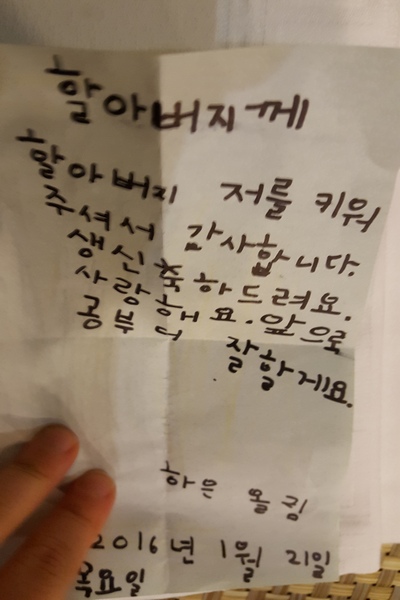 할아버지께
할아버지 저를 키워
주셔서 감사합니다.
생신축하드려요.
사랑해요. 앞으로
공부더 잘할게요.
하은 올림
2016년 1월 21일
목요일